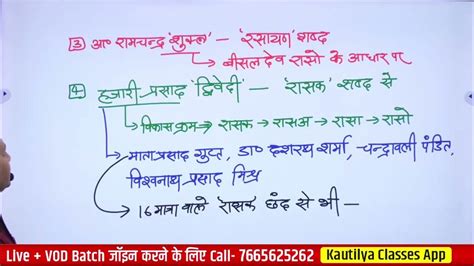 ③ आ० रामचन्द्र 'शुक्ल' – 'रसायण' शब्द
→ बीसलदेव रासो के आधार पर
④ हजारी प्रसाद 'द्विवेदी' – 'रासक' शब्द से
→ विकासक्रम → रासक → रासअ → रासा → रासो
→ माताप्रसाद गुप्त, डा० दशरथ शर्मा, चन्द्रावली पंडित,
विश्वनाथ प्रसाद मिश्र
→ 16 मात्रा वाले 'रासक' छंद से भी –
Live + VOD Batch जॉइन करने के लिए Call- 7665625262
Kautilya Classes App